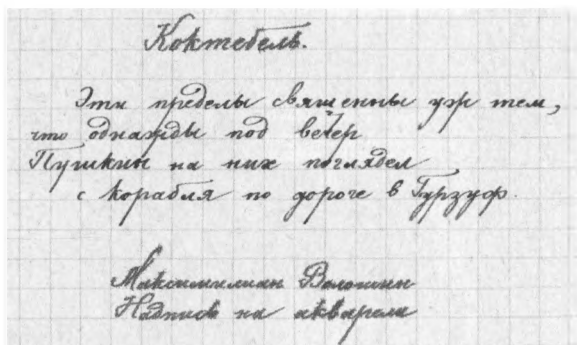 Коктебель.
Эти пределы священны уж тем,
что однажды под вечер
Пушкин на них поглядел
с корабля по дороге в Гурзуф.
Максимилиан Волошин
Надпись на акварели